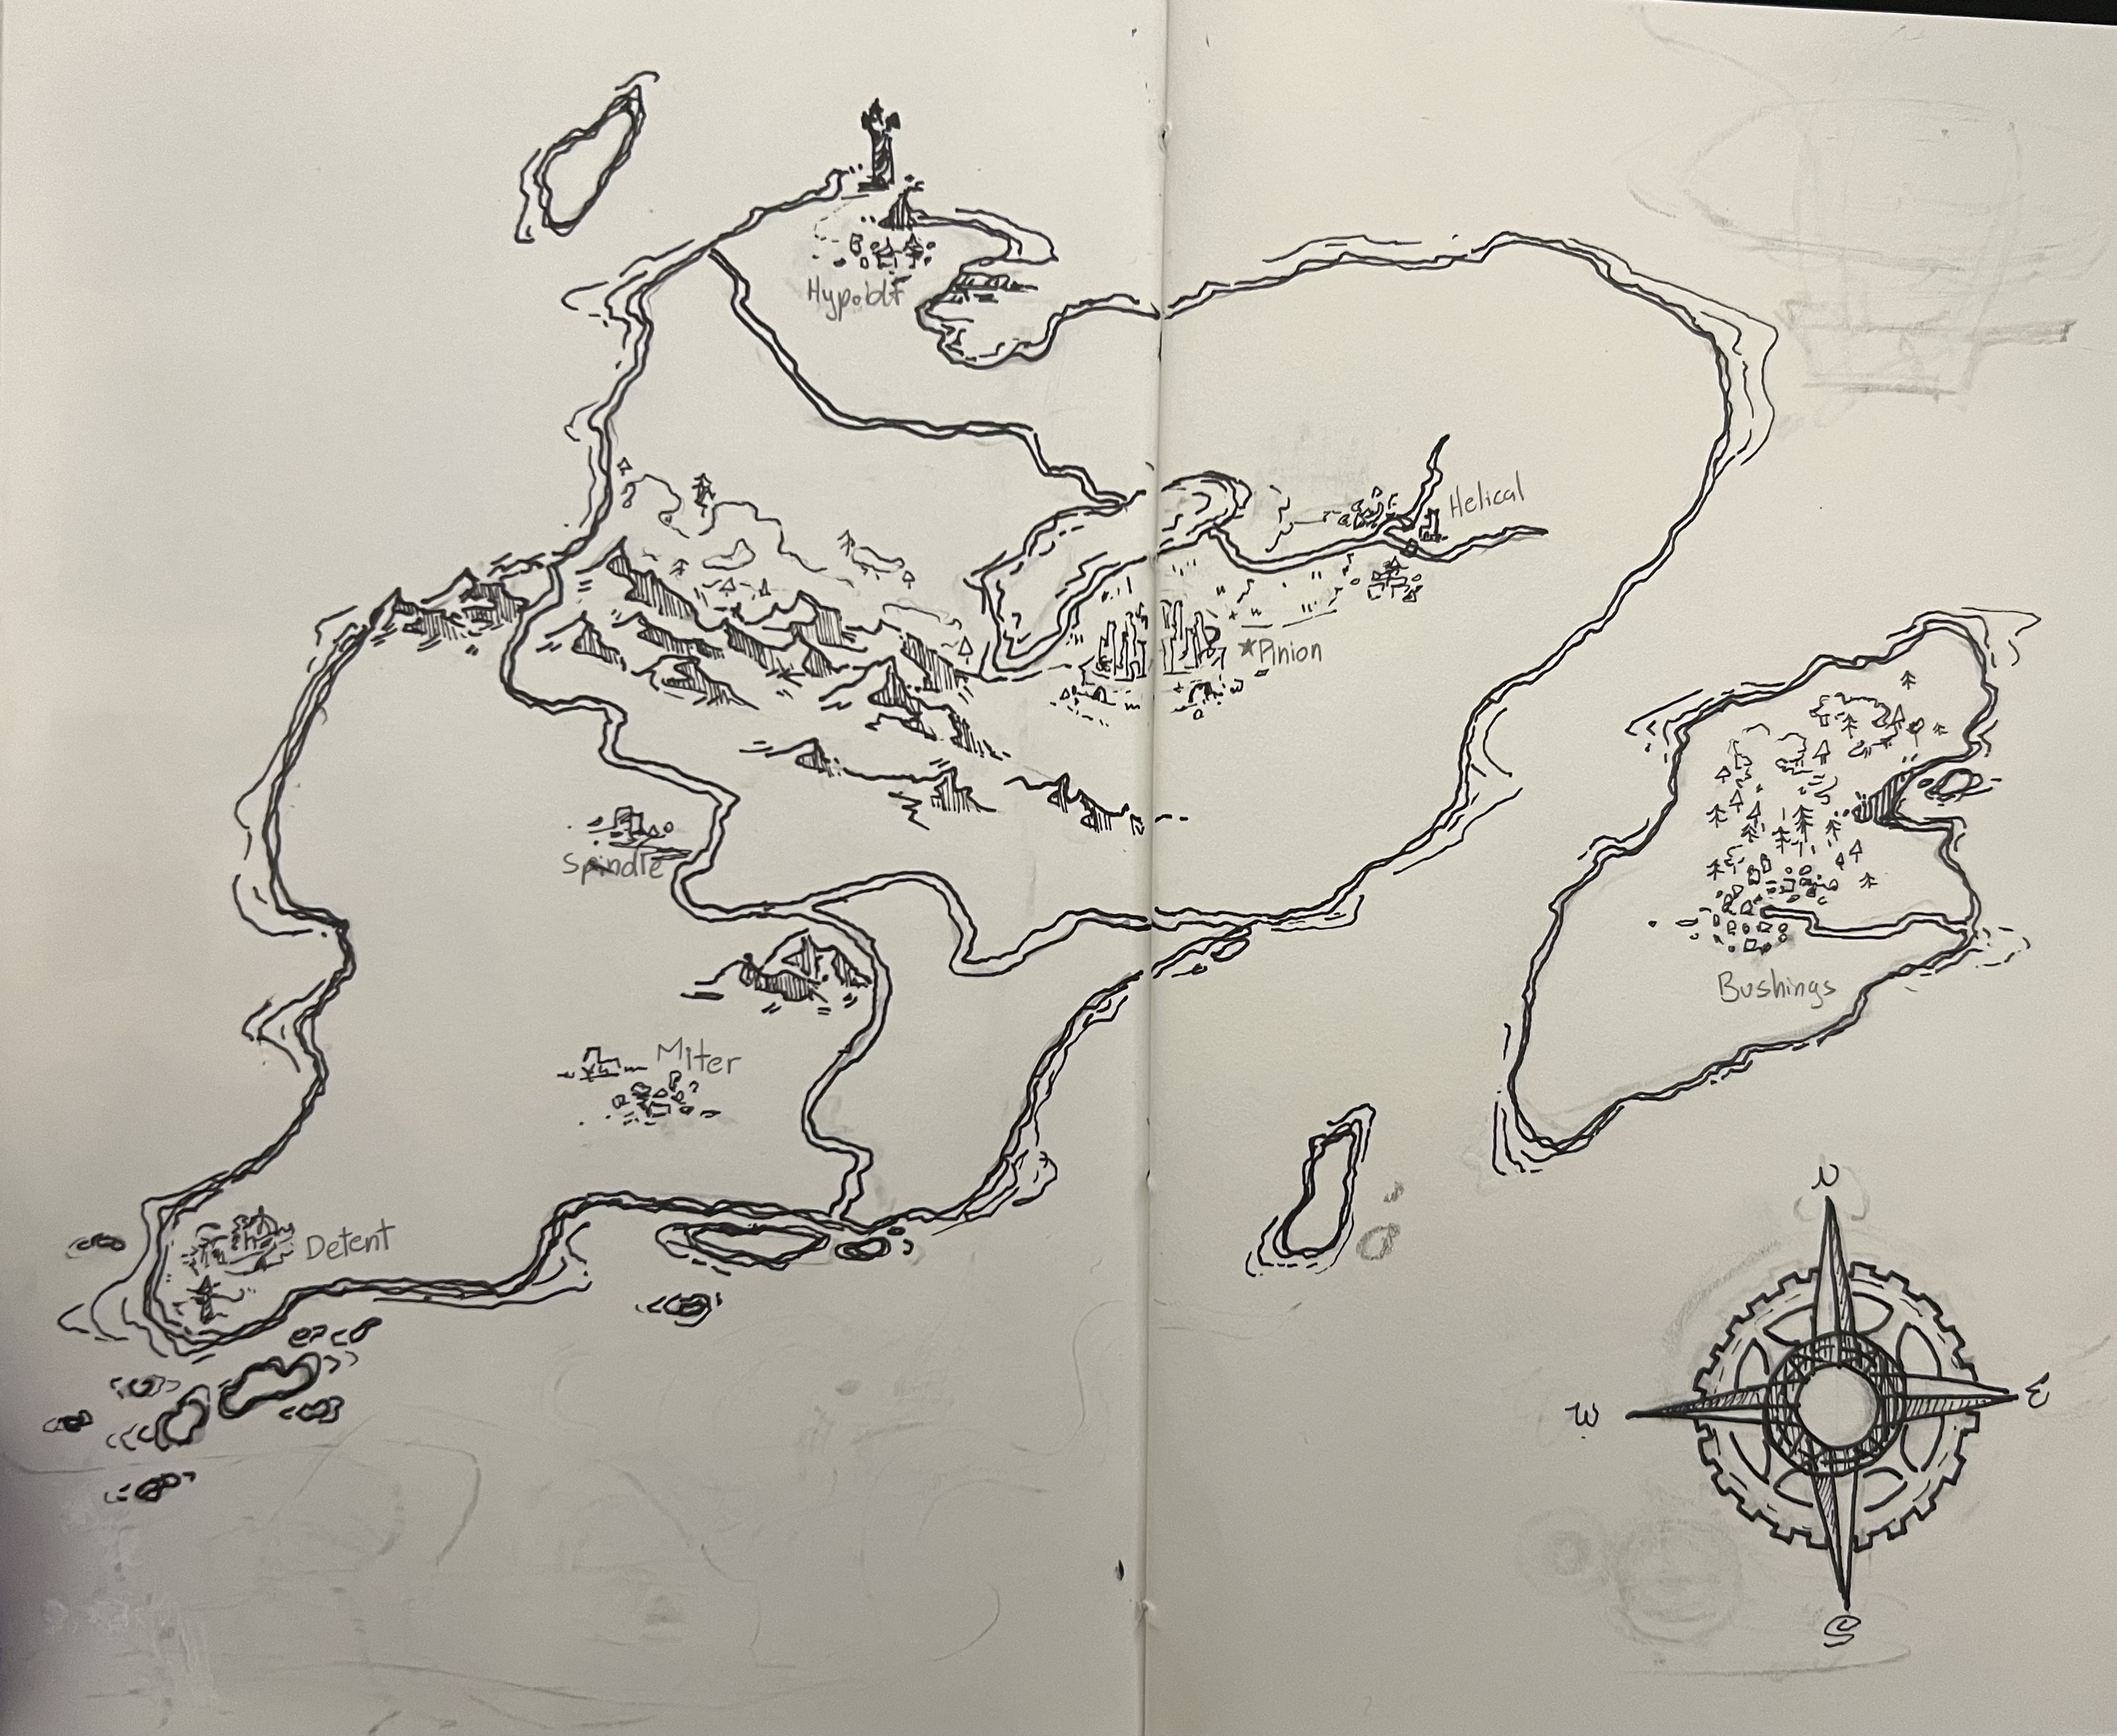 Helical
Pinion
Spindle
Bushings
Miter
Detent
N
W
E
S